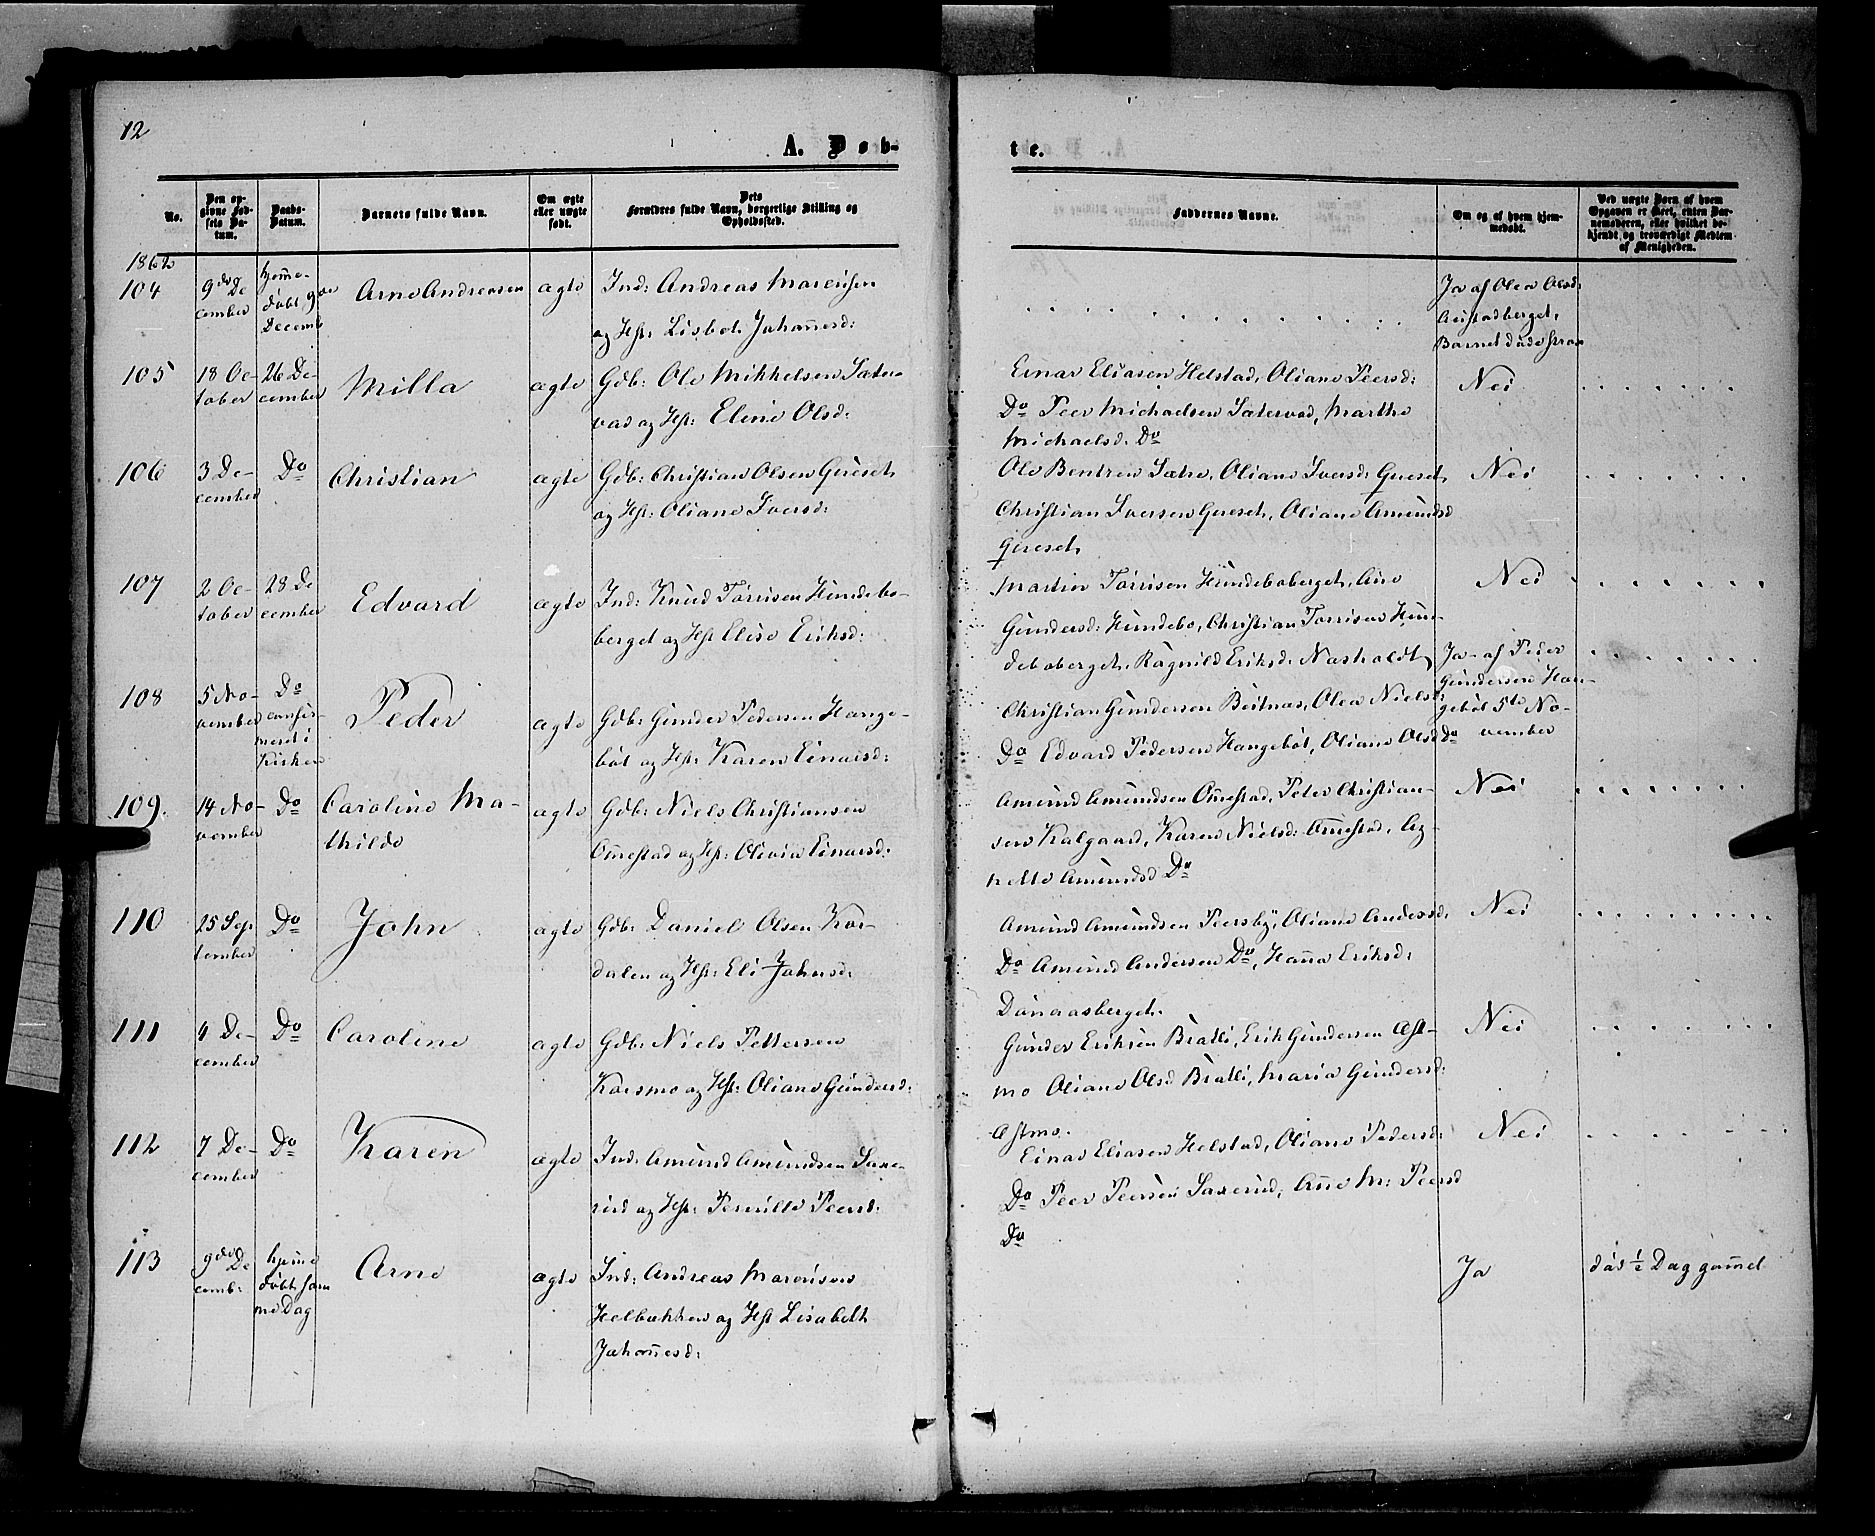 12
A. Døb-
te.
No.
Den op-
givne Fød-
sels Da-
tum.
Daabs-
Datum.
Barnets fulde Navn.
Om ægte
eller uægte
født.
Dets
Forældres fulde Navn, borgerlige Stilling og
Opholdssted.
Faddernes Navne.
Om og af hvem hjem-
medøbt.
Ved uægte Børn af hvem
Opgaven er skeet, enten Bar-
nemoderen, eller hvilket be-
kjendt og troværdigt Medlem
af Menigheden.
1862
104
9de De
cember
hjeme-
døbt 9de
Decemb
Arne Andreasen
ægte
Ind: Andreas Marensen
og Hst: Lisbet Johanesd:
Ja af Olea Olsd:
Barnet døde strax
105
18 Oc-
tober
26 De-
cember
Milla
ægte
Gdb: Ole Mikkelsen Sæter-
vad og Hst: Eline Olsd:
Einar Eliasen Helstad, Oliane Peersd:
Do Peer Michaelsen Sætervad, Marthe
Michaelsd. Do
Nei
106
3 De-
cember
Do
Christian
ægte
Gdb: Christian Olsen Gireset
og Hst: Oliane Iversd:
Ole Bentsen Sætre, Oliane Iversd: Gireset
Christian Iversen Gireset, Oliane Amundsd
Gireset
Nei
107
2 Oc-
tober
28 De
cember
Edvard
ægte
Ind: Knud Torrisen Hundebo-
berget og Hst Elise Eriksd:
Martin Torrisen Hundeboberget, Ane
Gundersd: Hundebo, Christian Torrisen Hun-
deboberget, Ragnild Eriksd. Næsholdt
Nei
108
5 No-
vember
Do
confir-
meret i
Kirken
Peder
ægte
Gdb: Gunder Pedersen Hange-
böl og Hst: Karen Einarsd:
Christian Gundersen Beitnæs, Olea Nielsd:
Do Edvard Pedersen Hangeböl, Oliane Olsd Do
Ja- af Peder
Gundersen Han-
geböl 5te No-
vember
109.
14 No-
vember
Do
Caroline Ma-
thilde
ægte
Gdb: Niels Christiansen
Omestad og Hst: Olivia Einarsd:
Amund Amundsen Omestad, Peter Christian-
sen Kalgaard, Karen Nielsd: Omestad, Ag-
nette Amundsd Do
Nei
110
25 Sep
tember
Do
John
ægte
Gdb: Daniel Olsen Kor-
dalen og Hst: Eli Johnsd:
Amund Amundsen Peersby, Oliane Andersd.
Do Amund Andersen Do, Hanna Eriksd:
Danaasberget.
Nei
111
4 De-
cember
Do
Caroline
ægte
Gdb: Niels Pettersen
Karsmo og Hst: Oliane Gundersd:
Gunder Eriksen Bratli, Erik Gundersen Ast-
mo Oliane Olsd Bratli, Maria Gundersd:
Astmo.
Nei
112
7 De-
cember
Do
Karen
ægte
Ind: Amund Amundsen Saxe-
rud og Hst: Pernille Peersd:
Einar Eliasen Helstad, Oliane Pedersd:
Do Peer Peersen Saxerud, Ane M: Peersd
Do
Nei
113
9de De
cemb:
hjeme
døbt sam
me Dag
Arne
ægte
Ind: Andreas Marensen
Helbakken og Hst Lisabeth
Johanesd:
Ja
död ½ Dag gamel